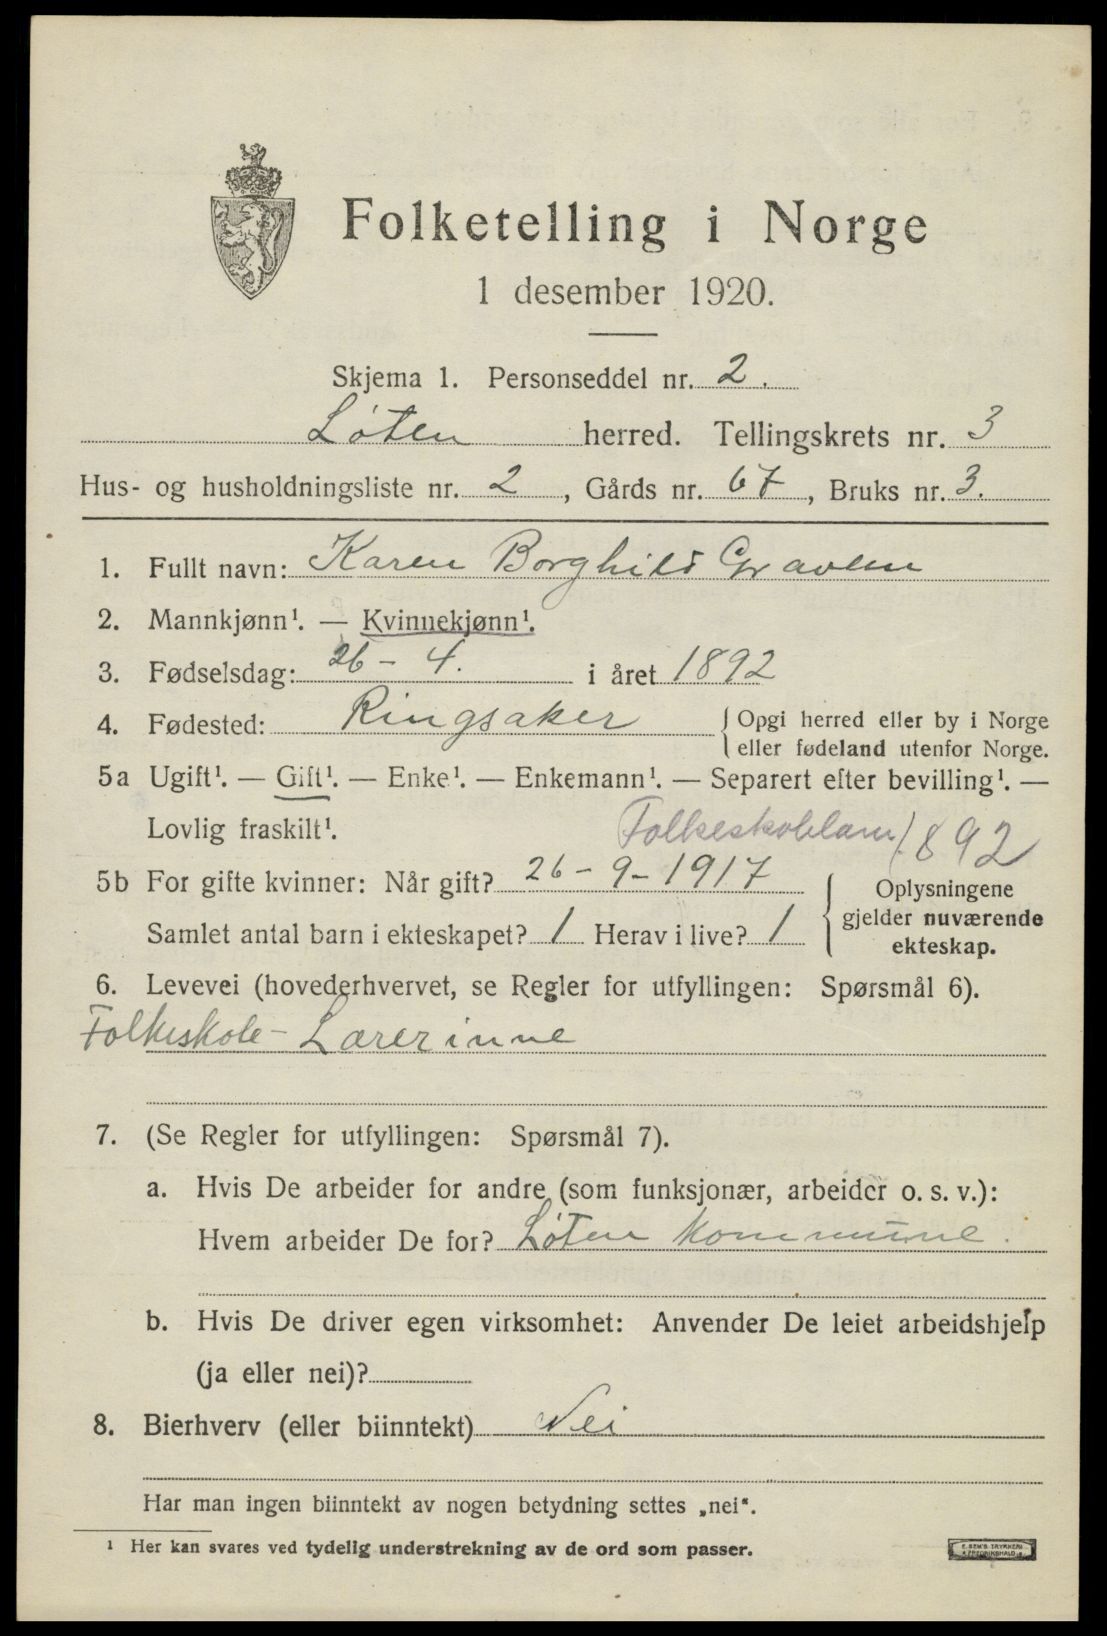 Folketelling i Norge
1 desember 1920.
Skjema 1. Personseddel nr. 2.
Løten herred. Tellingskrets nr. 3
Hus- og husholdningsliste nr. 2, Gårds nr. 67, Bruks nr. 3.
1. Fullt navn: Karen Borghild Gravlem
2. Mannkjønn¹. — Kvinnekjønn¹.
3. Fødselsdag: 26 - 4. i året 1892
4. Fødested: Ringsaker {Opgi herred eller by i Norge
eller fødeland utenfor Norge.
5a Ugift¹. — Gift¹. — Enke¹. — Enkemann¹. — Separert efter bevilling¹. —
Lovlig fraskilt¹. 892
5b For gifte kvinner: Når gift? 26 - 9 - 1917 { Oplysningene
Samlet antal barn i ekteskapet? 1 Herav i live? 1 gjelder nuværende
ekteskap.
6. Levevei (hovederhvervet, se Regler for utfyllingen: Spørsmål 6).
Folkeskole - Lærerinne
7. (Se Regler for utfyllingen: Spørsmål 7).
a. Hvis De arbeider for andre (som funksjonær, arbeider o. s. v.):
Hvem arbeider De for? Løten kommune.
b. Hvis De driver egen virksomhet: Anvender De leiet arbeidshjelp
(ja eller nei)?
8. Bierhverv (eller biinntekt) Nei
Har man ingen biinntekt av nogen betydning settes „nei“.
¹ Her kan svares ved tydelig understrekning av de ord som passer.
E. SEM'S TRYKKERI
FREDRIKSHALD